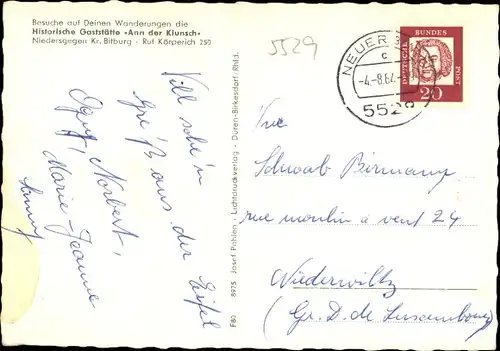 Besuche auf Deinen Wanderungen die
Historische Gaststätte «Ann der Klunsch»
Niedersgegen Kr. Bitburg - Ruf Körperich 250
5529
NEUER
c
-4.-8.64.-
552
DEUTSCHE BUNDESPOST
20
Vill schéin
Gréiß aus der Eifel
Norbert,
Marie-Jeanne
F80 8975 Josef Pahlen - Lichtdruckverlag - Düren-Birkesdorf/Rhld.
Schwab Birmany
rue moulin à vent 24
Niederwiltz
(Gr. D. de Luxembourg)